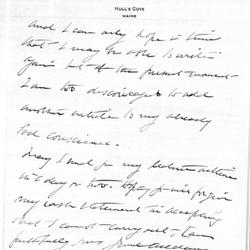 HULL'S COVE
MAINE
and I can only hope in time
that I may be able to write
again but at the present moment
I am too discouraged to add
another article to my already
bad conscience.
May I send for my
in a day or two.
my rash statement in accepting
and I cannot carry out. I am
faithfully yours